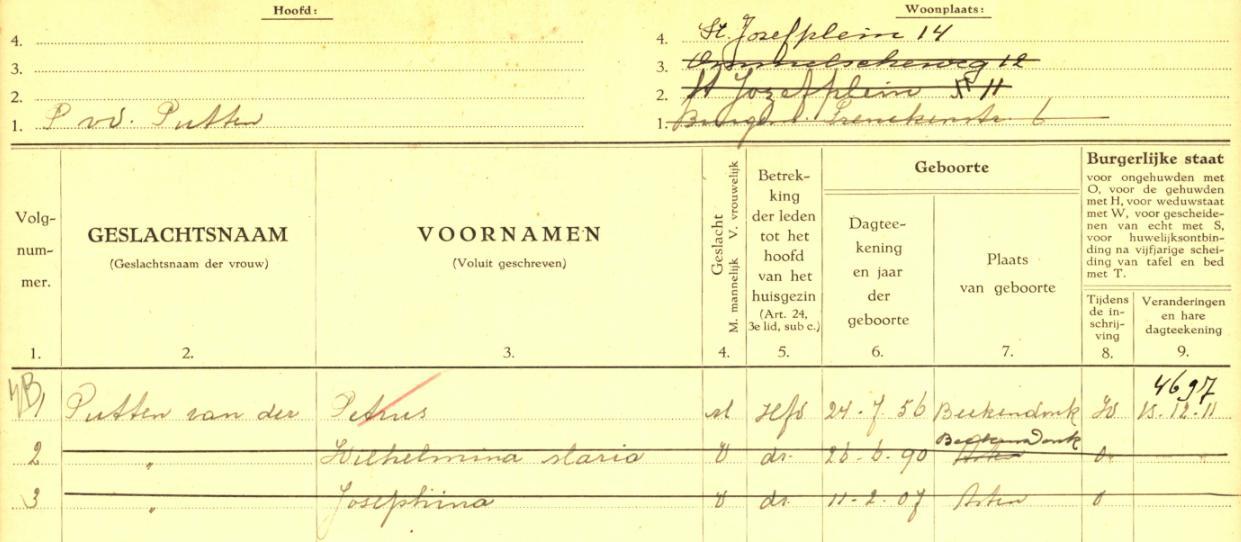 Hoofd: Woonplaats:
4. 4. St. Josefplein 14
3. 3. Ommelscheweg 12
2. 2. St Jozefplein 11
1. P vd. Putten 1. Burgem. Frenckenstr. 6
Volgnummer. GESLACHTSNAAM (Geslachtsnaam der vrouw) VOORNAMEN (Voluit geschreven) Geslacht M. mannelijk V. vrouwelijk Betrekking der leden tot het hoofd van het huisgezin (Art. 24, 3e lid, sub c.) Geboorte Dagteekening en jaar der geboorte Plaats van geboorte
Burgerlijke staat
voor ongehuwden met
O, voor de gehuwden
met H, voor weduwstaat
met W, voor gescheide-
nen van echt met S,
voor huwelijksontbin-
ding na vijfjarige schei-
ding van tafel en bed
met T.
Tijdens de inschrijving Veranderingen en hare dagteekening
1. 2. 3. 4. 5. 6. 7. 8. 9.
4697
1 Putten van der Petrus M Hfd 24-7-56 Beekendonk W 15-12-11
Beekendonk
2 " Wilhelmina Maria V dr. 26-6-90 Asten O
3 " Josephina V dr. 11-2-07 Asten O